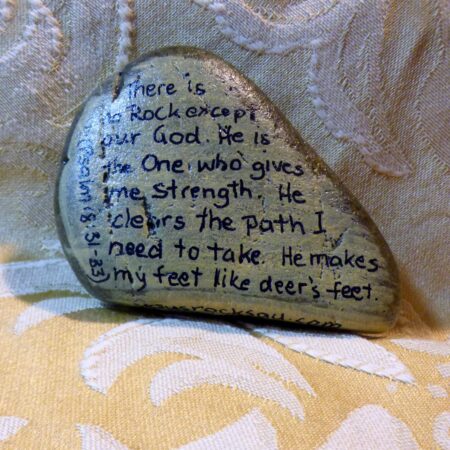 There is
no Rock except
our God. He is
the One who gives
me strength. He
clears the path I
need to take. He makes
my feet like deer's feet.
(Psalm 18:31-33)